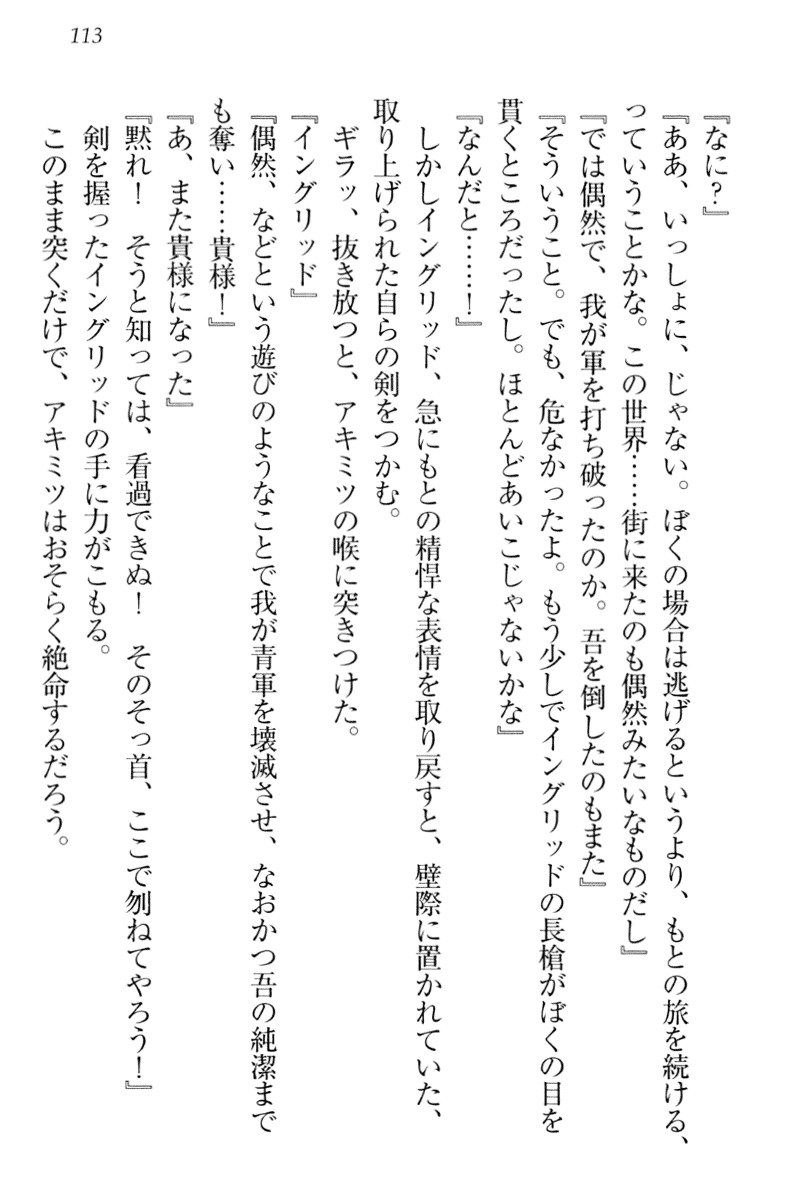 113
『なに?』
『ああ、いっしょに、じゃない。ぼくの場合は逃げるというより、もとの旅を続ける、
っていうことかな。この世界……街に来たのも偶然みたいなものだし』
『では偶然で、我が軍を打ち破ったのか。吾を倒したのもまた』
『そういうこと。でも、危なかったよ。もう少しでイングリッドの長槍がぼくの目を
貫くところだったし。ほとんどあいこじゃないかな』
『なんだと……!』
しかしイングリッド、急にもとの精悍な表情を取り戻すと、壁際に置かれていた、
取り上げられた自らの剣をつかむ。
ギラッ、抜き放つと、アキミツの喉に突きつけた。
『イングリッド』
『偶然、などという遊びのようなことで我が青軍を壊滅させ、なおかつ吾の純潔まで
も奪い……貴様!』
『あ、また貴様になった』
『黙れ! そうと知っては、看過できぬ! そのそっ首、ここで刎ねてやろう!』
剣を握ったイングリッドの手に力がこもる。
このまま突くだけで、アキミツはおそらく絶命するだろう。